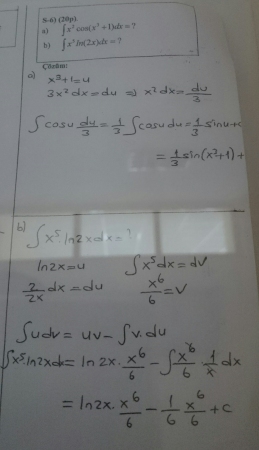 S-6) (20p).
a) ∫x² cos(x³ + 1)dx = ?
b) ∫x⁵ ln(2x)dx = ?
Çözüm:
a) x³+1=u
3x²dx=du ⇒ x²dx=du/3
∫cosu du/3 = 1/3 ∫cosu du = 1/3 sinu+c
= 1/3 sin(x³+1)+
b) ∫x⁵ ln2x dx=?
ln2x=u ∫x⁵dx=dv
2/2x dx=du x⁶/6=v
∫udv = uv-∫v.du
∫x⁵ln2xdx = ln2x. x⁶/6 - ∫x⁶/6 . 1/x dx
= ln2x. x⁶/6 - 1/6 x⁶/6 + c